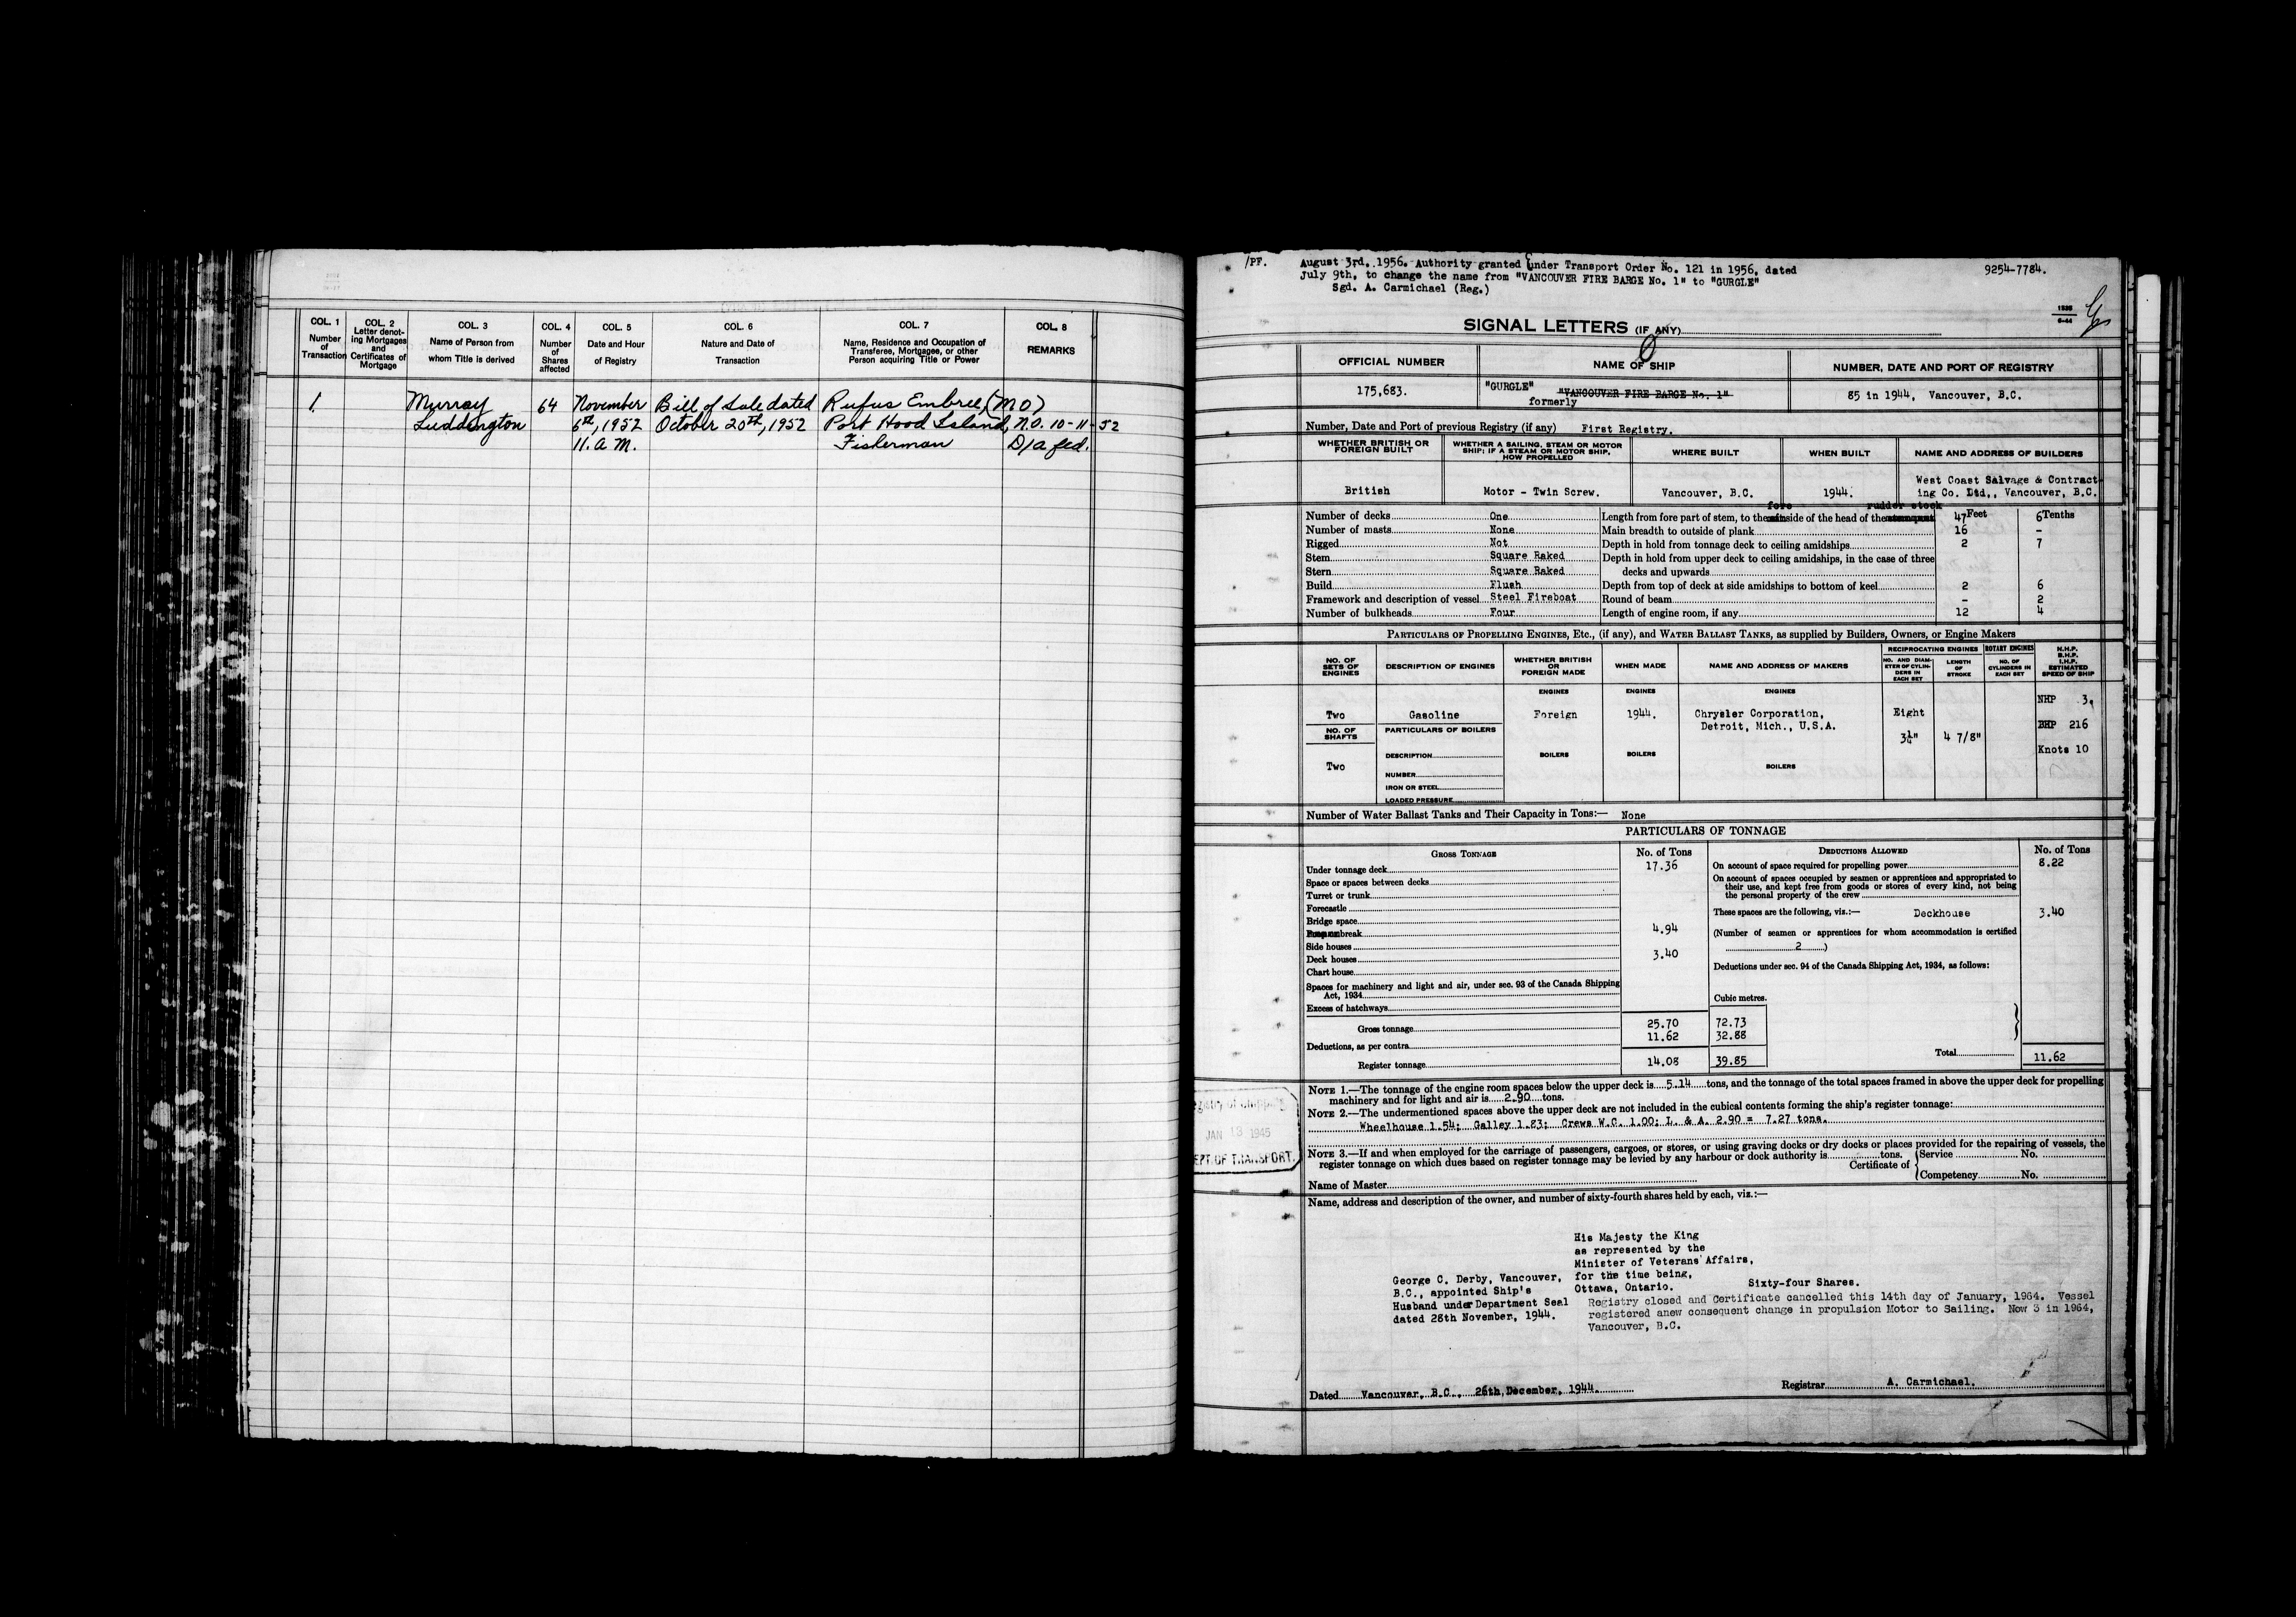 COL. 1
Number
of
Transaction
COL. 2
Letter denot-
ing Mortgages
and
Certificates of
Mortgage
COL. 3
Name of Person from
whom Title is derived
COL. 4
Number
of
Shares
affected
COL. 5
Date and Hour
of Registry
COL. 6
Nature and Date of
Transaction
COL. 7
Name, Residence and Occupation of
Transferee, Mortgagee, or other
Person acquiring Title or Power
COL. 8
REMARKS
1. Murray 64 November Bill of Sale dated Rufus Embree, (M O)
Luddington 6th, 1952 October 20th, 1952 Port Hood Island, N.O. 10-11-52
11. A M. Fisherman D/A fld.
/PF. August 3rd, 1956. Authority granted under Transport Order No. 121 in 1956, dated 9254-7784.
July 9th, to change the name from "VANCOUVER FIRE BARGE No. 1" to "GURGLE"
Sgd. A. Carmichael (Reg.)
SIGNAL LETTERS (IF ANY)
OFFICIAL NUMBER NAME OF SHIP NUMBER, DATE AND PORT OF REGISTRY
175,683. "GURGLE" formerly "VANCOUVER FIRE BARGE No. 1" 85 in 1944, Vancouver, B.C.
Number, Date and Port of previous Registry (if any) First Registry.
WHETHER BRITISH OR
FOREIGN BUILT
WHETHER A SAILING, STEAM OR MOTOR
SHIP; IF A STEAM OR MOTOR SHIP,
HOW PROPELLED
WHERE BUILT
WHEN BUILT
NAME AND ADDRESS OF BUILDERS
British Motor - Twin Screw. Vancouver, B.C. 1944. West Coast Salvage & Contract-
ing Co. Ltd,, Vancouver, B.C.
fore rudder stock
Number of decks One Length from fore part of stem, to the side of the head of the 47 Feet 6 Tenths
Number of masts None Main breadth to outside of plank 16 -
Rigged Not Depth in hold from tonnage deck to ceiling amidships 2 7
Stem Square Raked Depth in hold from upper deck to ceiling amidships, in the case of three
Stern Square Raked decks and upwards
Build Flush Depth from top of deck at side amidships to bottom of keel 2 6
Framework and description of vessel Steel Fireboat Round of beam - 2
Number of bulkheads Four Length of engine room, if any 12 4
PARTICULARS OF PROPELLING ENGINES, ETC., (if any), and WATER BALLAST TANKS, as supplied by Builders, Owners, or Engine Makers
NO. OF
SETS OF
ENGINES
DESCRIPTION OF ENGINES
WHETHER BRITISH
OR
FOREIGN MADE
WHEN MADE
NAME AND ADDRESS OF MAKERS
RECIPROCATING ENGINES
NO. AND DIAM-
ETER OF CYLIN-
DERS IN
EACH SET
LENGTH
OF
STROKE
ROTARY ENGINES
NO. OF
CYLINDERS IN
EACH SET
N.H.P.
B.H.P.
I.H.P.
ESTIMATED
SPEED OF SHIP
ENGINES ENGINES ENGINES
NHP 3.
Two Gasoline Foreign 1944. Chrysler Corporation, Eight
Detroit, Mich., U.S.A. BHP 216
NO. OF
SHAFTS
PARTICULARS OF BOILERS
3¼" 4 7/8"
Knots 10
DESCRIPTION BOILERS BOILERS
Two BOILERS
NUMBER
IRON OR STEEL
LOADED PRESSURE
Number of Water Ballast Tanks and Their Capacity in Tons:— None
PARTICULARS OF TONNAGE
GROSS TONNAGE No. of Tons DEDUCTIONS ALLOWED No. of Tons
Under tonnage deck 17.36 On account of space required for propelling power 8.22
Space or spaces between decks
On account of spaces occupied by seamen or apprentices and appropriated to
their use, and kept free from goods or stores of every kind, not being
the personal property of the crew
Turret or trunk
Forecastle
Bridge space These spaces are the following, viz.:— Deckhouse 3.40
break 4.94
(Number of seamen or apprentices for whom accommodation is certified
2 )
Side houses
Deck houses 3.40
Chart house
Deductions under sec. 94 of the Canada Shipping Act, 1934, as follows:
Spaces for machinery and light and air, under sec. 93 of the Canada Shipping
Act, 1934
Excess of hatchways
Cubic metres.
Gross tonnage 25.70 72.73
Deductions, as per contra 11.62 32.88
Register tonnage 14.08 39.85 Total 11.62
NOTE 1.—The tonnage of the engine room spaces below the upper deck is 5.14 tons, and the tonnage of the total spaces framed in above the upper deck for propelling
machinery and for light and air is 2.90 tons.
NOTE 2.—The undermentioned spaces above the upper deck are not included in the cubical contents forming the ship's register tonnage:
Wheelhouse 1.54; Galley 1.83; Crews W.C. 1.00; L. & A. 2.90 = 7.27 tons.
NOTE 3.—If and when employed for the carriage of passengers, cargoes, or stores, or using graving docks or dry docks or places provided for the repairing of vessels, the
register tonnage on which dues based on register tonnage may be levied by any harbour or dock authority is tons.
Certificate of Service No.
Competency No.
Name of Master
JAN 13 1945
DEPT. OF TRANSPORT.
Name, address and description of the owner, and number of sixty-fourth shares held by each, viz.:—
His Majesty the King
as represented by the
Minister of Veterans' Affairs,
for the time being,
Ottawa, Ontario. Sixty-four Shares.
George C. Derby, Vancouver,
B.C., appointed Ship's
Husband under Department Seal
dated 28th November, 1944.
Registry closed and Certificate cancelled this 14th day of January, 1964. Vessel
registered anew consequent change in propulsion Motor to Sailing. Now 3 in 1964,
Vancouver, B.C.
Dated Vancouver, B.C., 26th, December, 1944. Registrar A. Carmichael.